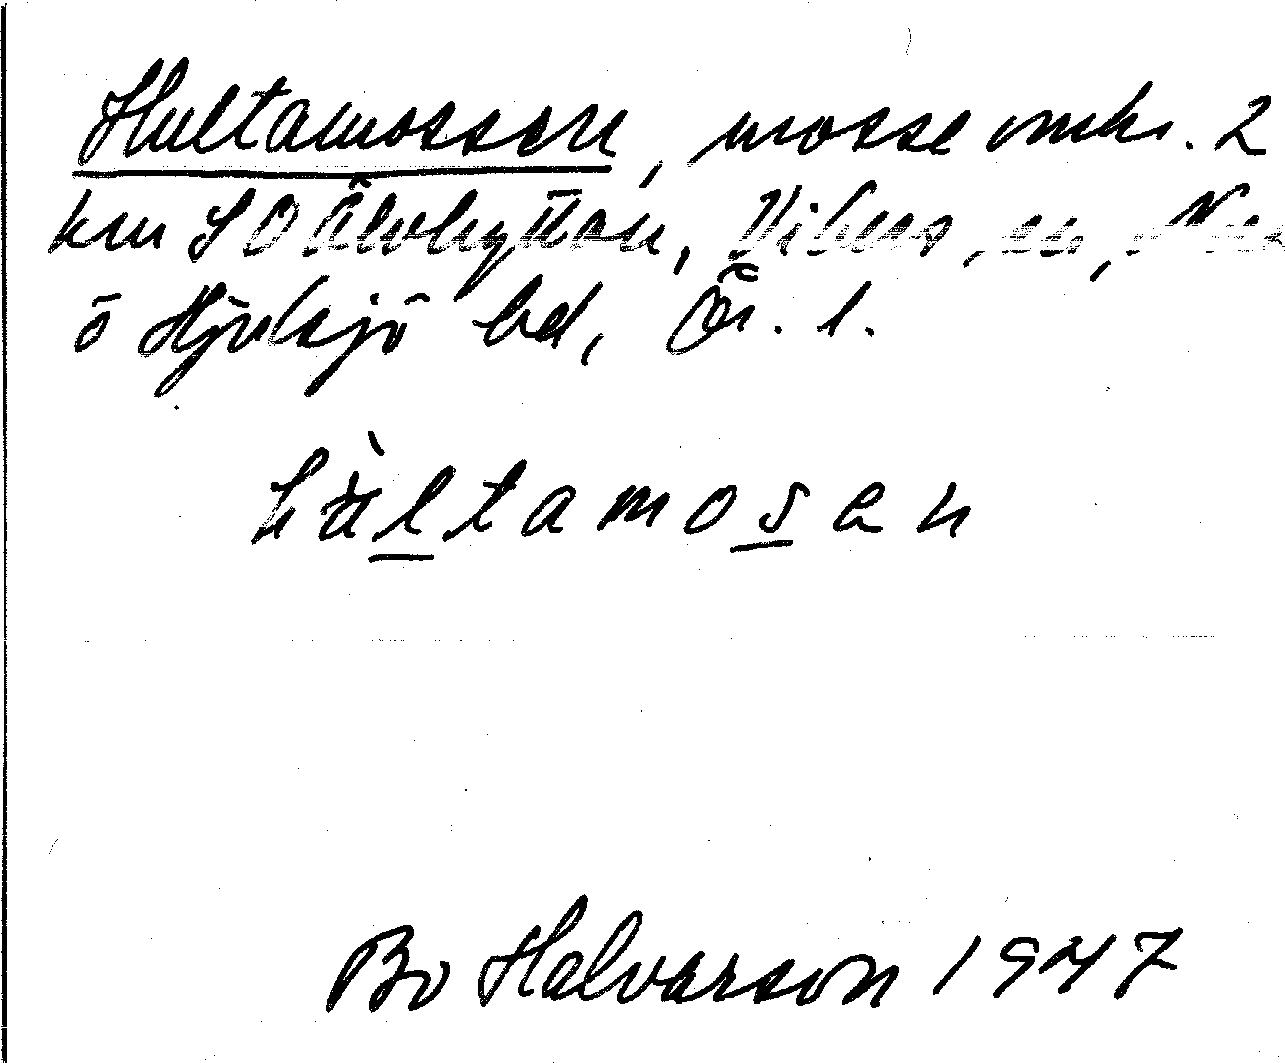 Hultamossen, mosse omkr. 2
km SO Älvhyttan, Vikers sn, Nora
o Hjulsjö bd, Ör. l.
hùltamosen
Bo Halvarson 1947